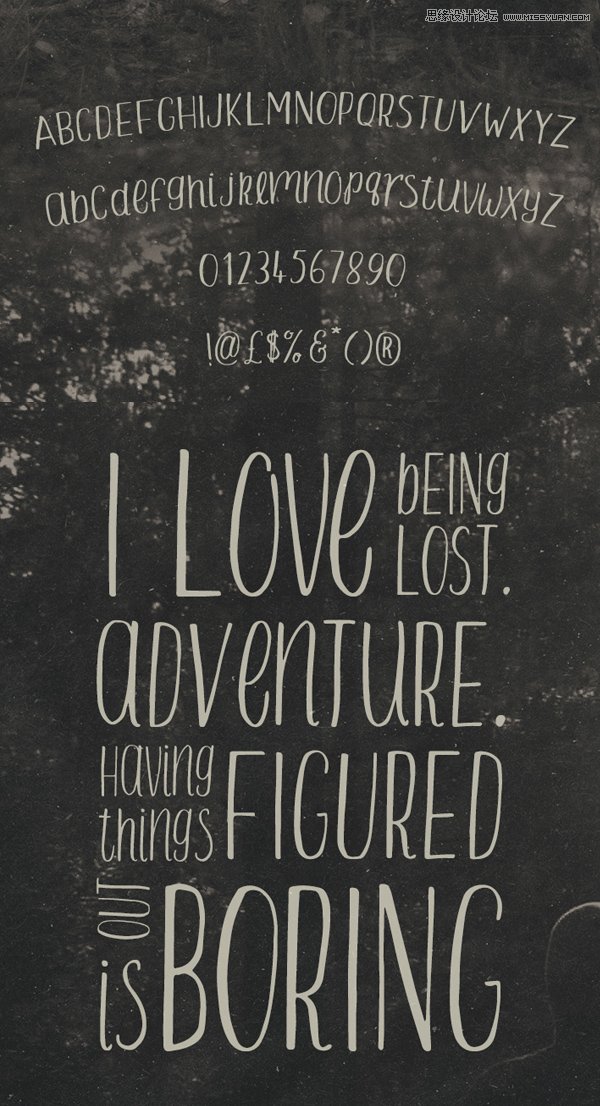 思缘设计论坛 WWW.MISSYUAN.COM
ABCDEFGHIJKLMNOPQRSTUVWXYZ
abcdefghijklmnopqrstuvwxyz
01234567890
!@£$%&*()®
I LOVe bEING
LOST.
aDVenTURE.
Having
things FIGURED
OUT
is BORING